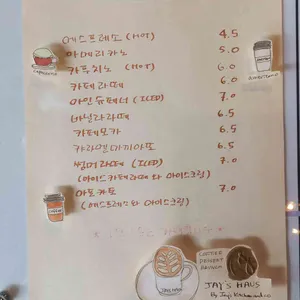 에스프레소 (HOT) 4.5
아메리카노 5.0
카푸치노 (HOT) 6.0
카페라떼 6.0
아인슈페너 (ICED) 7.0
바닐라라떼 6.5
카페모카 6.5
카라멜마끼아또 6.5
썸머라떼 (ICED) 7.0
(아이스카페라떼 와 아이스크림)
아포카토 7.0
(에스프레소 와 아이스크림)
COFFEE
DESSERT
BRUNCH
JAY'S HAUS